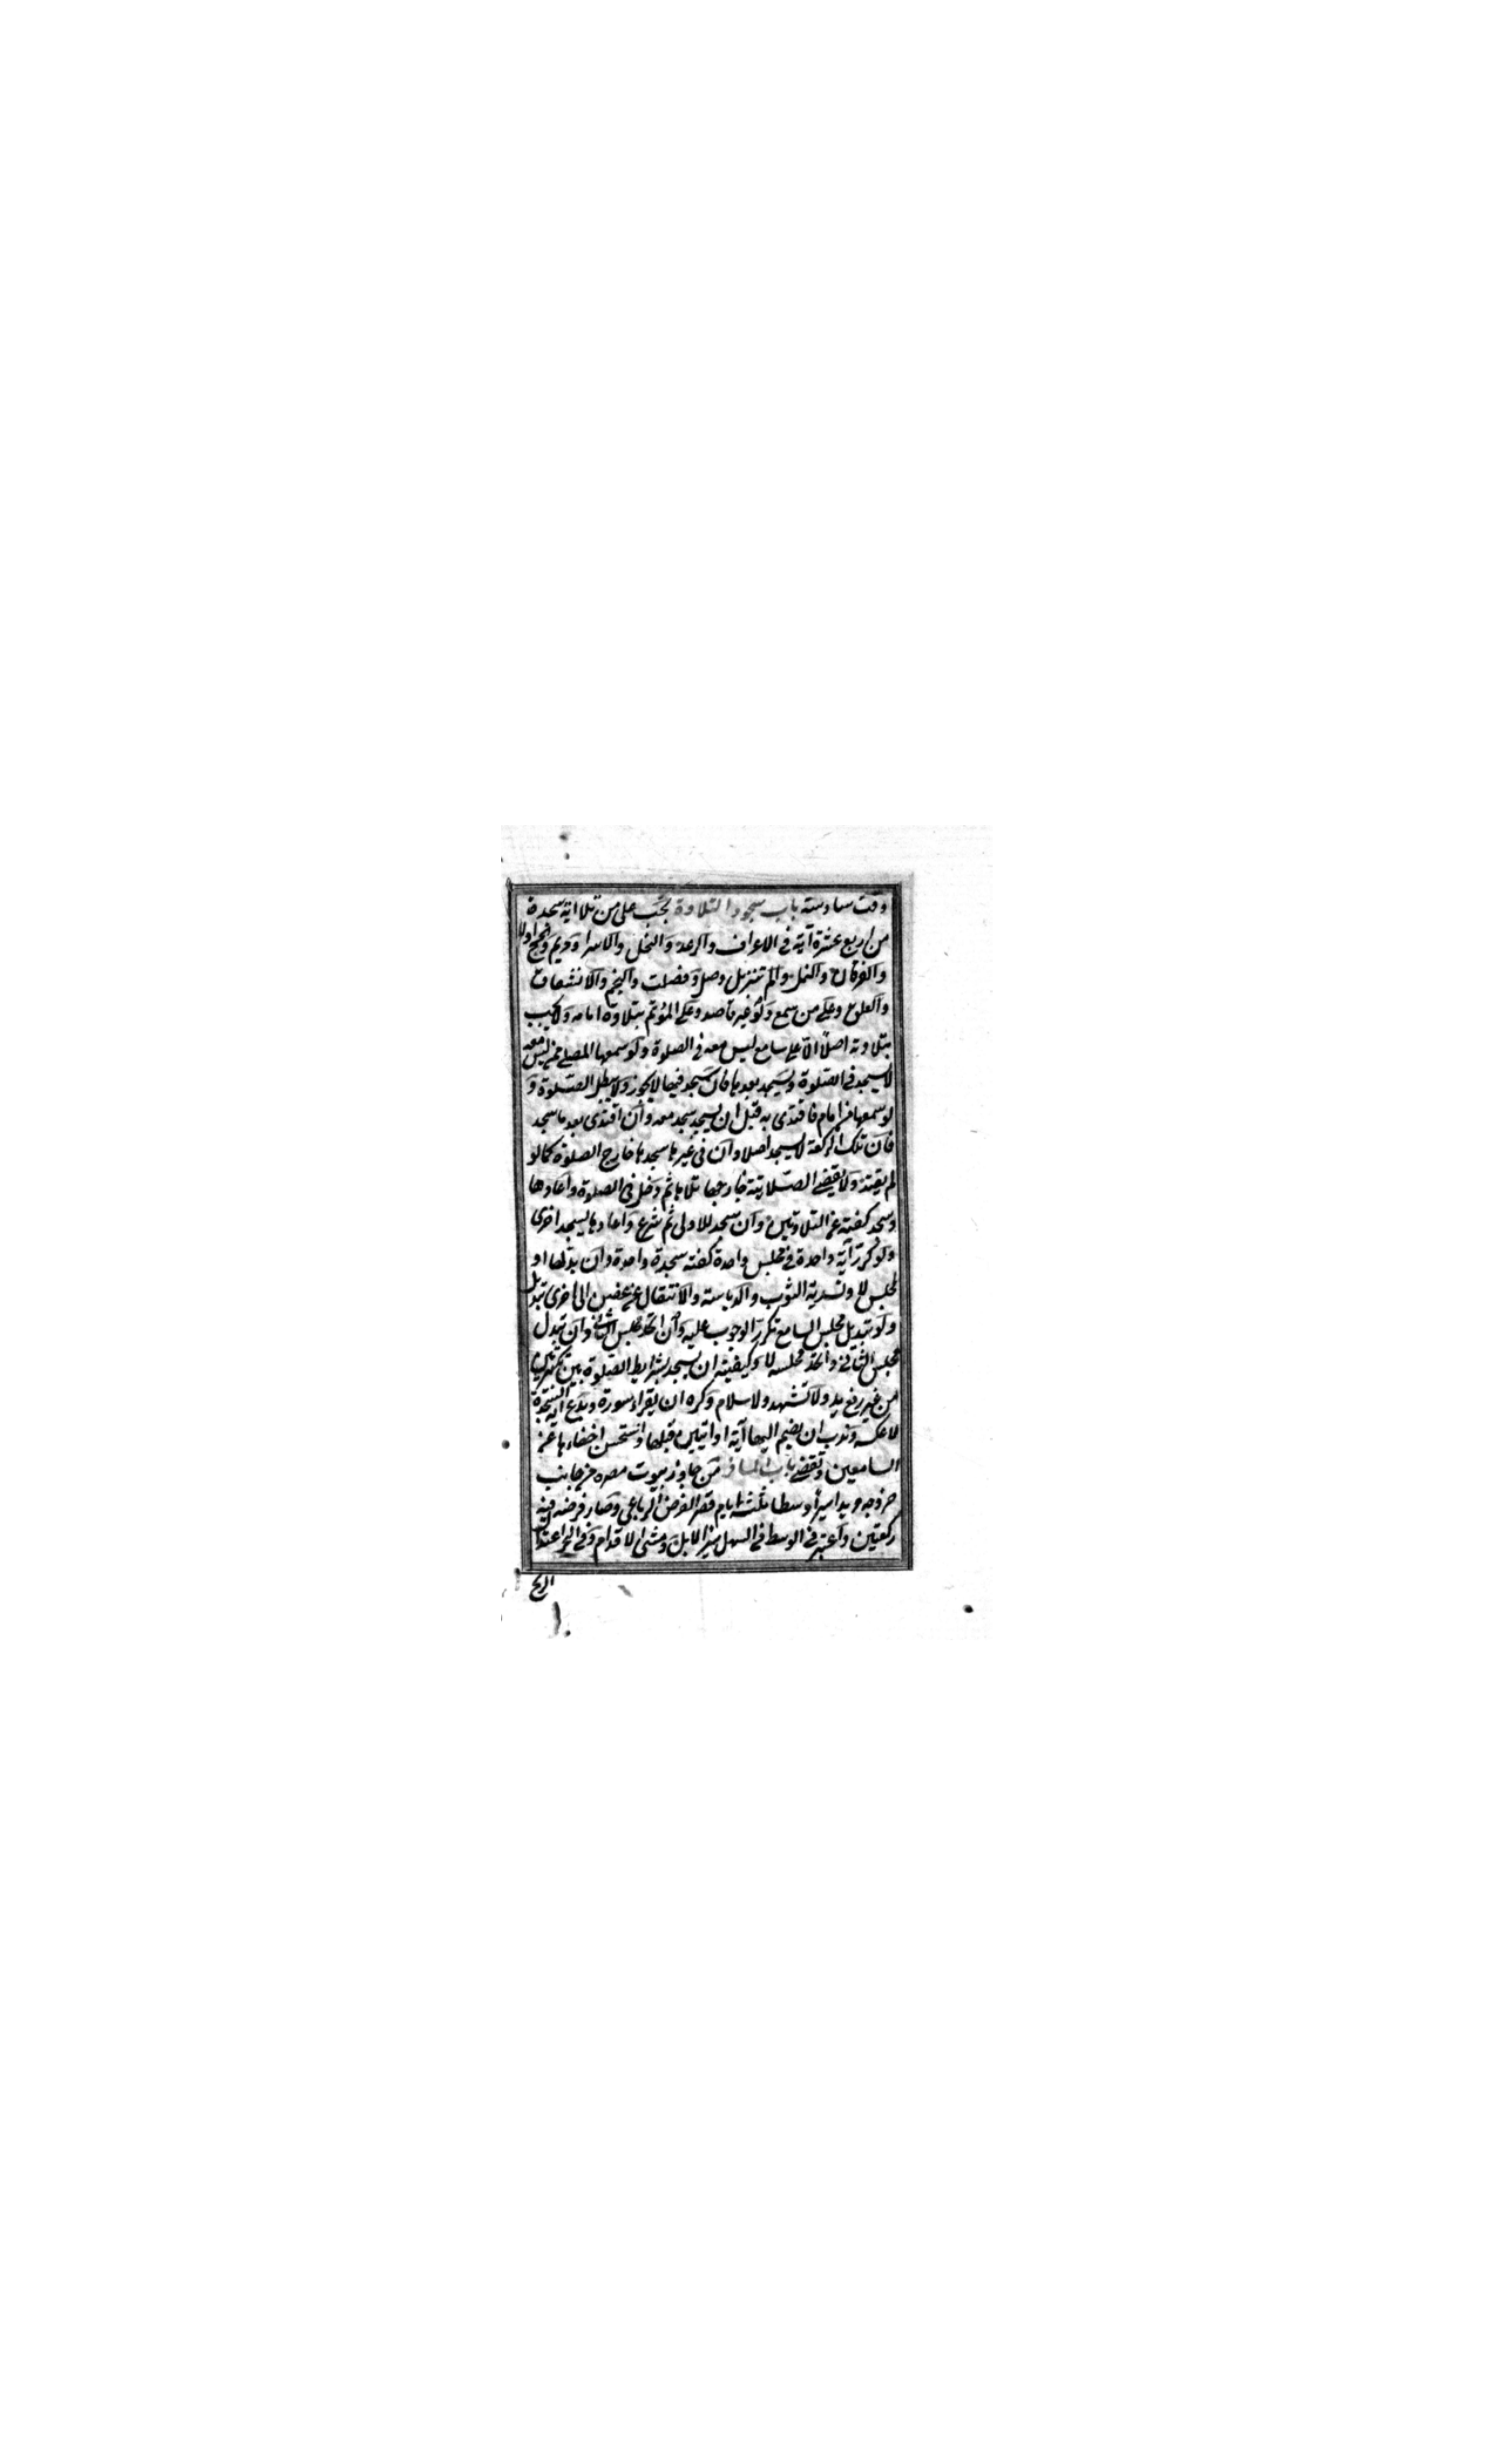 وقت سادسة باب سجود التلاوة تجب على من تلا اية سجدة
من اربع عشرة آية في الاعراف والرعد والنحل والاسرا ومريم والحج اولا
والفرقان والنمل والم تنزيل وص وفصلت والنجم والانشقاق
والعلق وعلى من سمع ولو غير قاصد وعلى المؤتم بتلاوة امامه ولا تجب
بتلاوته اصلا الا على سامع ليس معه في الصلوة ولو سمعها المصلي ممن ليس معه
لا يسجد في الصلوة ويسجد بعدها فان سجد فيها لا يجوز ولا يبطل الصلوة و
لو سمعها من امام فاقتدى به قبل ان يسجد سجد معه وان اقتدى بعد ما سجد
فان تلك الركعة لا يسجد اصلا وان في غيرها سجدها خارج الصلوة كما لو
لم يقتد ولا يقضي الصلاتية خارجها تلاها ثم دخل في الصلوة واعادها
وسجد كفته عن التلاوتين وان سجد للاولى ثم شرع واعادها يسجد اخرى
ولو كرر آية واحدة في مجلس واحدة كفته سجدة واحدة وان بدلها او
المجلس لا وتسدية الثوب والدياسة والانتقال من غصن الى اخرى تبديل
ولو تبديل مجلس السامع تكرر الوجوب عليه وان اتحد مجلس التالي وان تبدل
مجلس الثاني واتحد مجلسه لا وكيفيته ان يسجد بشرايط الصلوة بين تكبيرتين
من غير رفع يد ولا تشهد ولا سلام وكره ان يقراء سورة ويدع آية السجدة
لا عكسه وندب ان يضم اليها آية او آيتين قبلها واستحسن اخفاءها عن
السامعين وتقضي باب المسافر من جاوز بيوت مصره من جانب
خروجه مريدا سيرا وسطا ثلثة ايام قصر الفرض الرباعي وصار فرضه فيه
ركعتين واعتبر في الوسط في السهل سير الابل ومشي الاقدام وفي البحر اعتدال
الريح